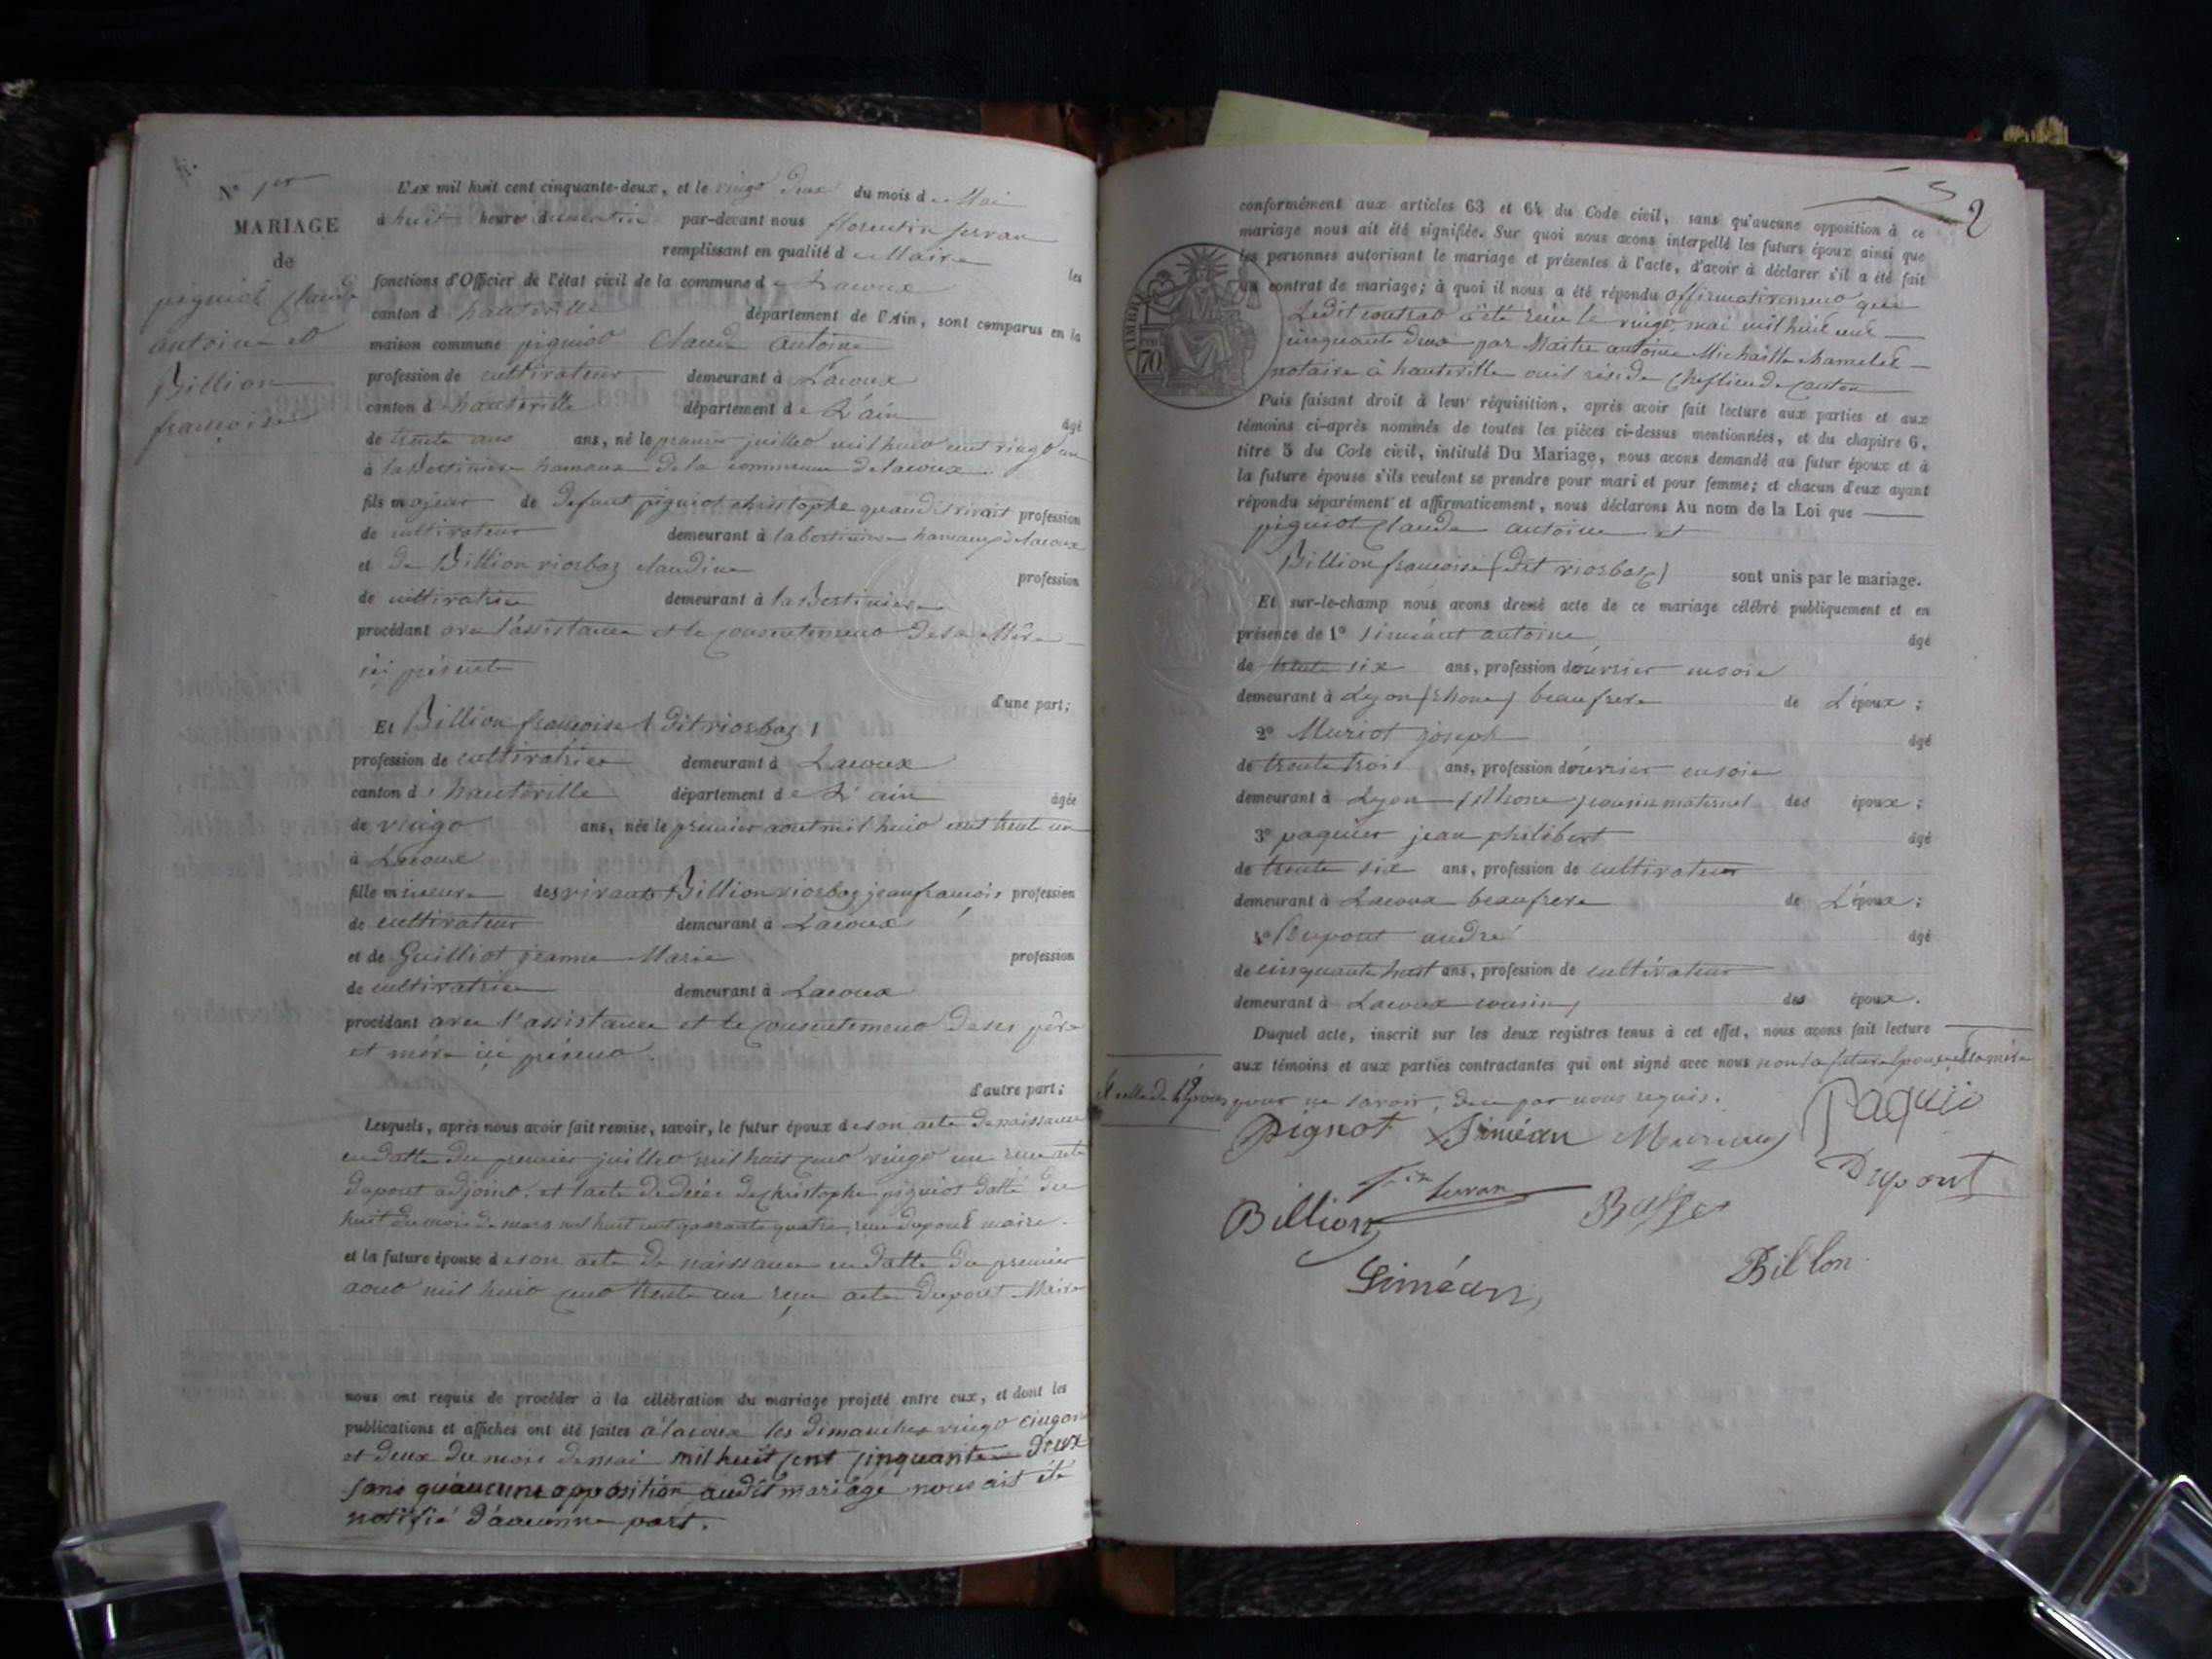 N° 1er
MARIAGE
de
piguiot Claude
antoine et
Billion
françoise
L'AN mil huit cent cinquante-deux, et le vingt deux du mois de Mai
à huit heures du matin par-devant nous florentin ferran
remplissant en qualité de Maire les
fonctions d'Officier de l'état civil de la commune de Lacoux
canton d'hauteville département de l'Ain, sont comparus en la
maison commune piguiot Claude antoine
profession de cultivateur demeurant à Lacoux
canton d'hauteville département de L'ain âgé
de trente ans ans, né le premier juillet mil huit cent vingt un
à la Bertinière hamaux de la commune de lacoux
fils majeur de defunt piguiot christophe quand il vivait profession
de cultivateur demeurant à labertiniere hamaux de lacoux
et de Billion riosbaz claudine profession
de cultivatrice demeurant à la Bertiniere
procédant avec l'assistance et le consentement de sa Mère
ici présente
d'une part;
Et Billion françoise (dit riosbaz)
profession de cultivatrice demeurant à Lacoux
canton d'hauteville département de L'ain âgée
de vingt ans, née le premier aout mil huit cent trente un
à Lacoux
fille mineure des vivants Billion riosbaz jean françois profession
de cultivateur demeurant à Lacoux
et de Guilliot jeanne Marie profession
de cultivatrice demeurant à Lacoux
procédant avec l'assistance et le consentement de ses père
et mère ici présent.
d'autre part;
Lesquels, après nous avoir fait remise, savoir, le futur époux de son acte de naissance
en datte du premier juillet mil huit cent vingt un reçu acte
dupont adjoint. et l'acte de décès de christophe piguiot datté du
huit du mois de mars mil huit cent quarante quatre, reçu dupont maire.
et la future épouse de son acte de naissance en datte du premier
aout mil huit cent trente un reçu acte dupont Maire
nous ont requis de procéder à la célébration du mariage projeté entre eux, et dont les
publications et affiches ont été faites à lacoux les dimanches vingt cinq
et deux du mois de mai mil huit cent cinquante deux
sans qu'aucune opposition audit mariage nous ait été
notifié d'aucunne part.
2
conformément aux articles 63 et 64 du Code civil, sans qu'aucune opposition à ce
mariage nous ait été signifiée. Sur quoi nous avons interpellé les futurs époux ainsi que
les personnes autorisant le mariage et présentes à l'acte, d'avoir à déclarer s'il a été fait
un contrat de mariage; à quoi il nous a été répondu affirmativement que
Ledit contrat à été reçu le vingt mai mil huit cent
cinquante deux par Maitre antoine Michaille chamelet
notaire à hauteville ou il réside cheflieu de canton
TIMBRE
70
Puis faisant droit à leur réquisition, après avoir fait lecture aux parties et aux
témoins ci-après nommés de toutes les pièces ci-dessus mentionnées, et du chapitre 6,
titre 5 du Code civil, intitulé Du Mariage, nous avons demandé au futur époux et à
la future épouse s'ils veulent se prendre pour mari et pour femme; et chacun d'eux ayant
répondu séparément et affirmativement, nous déclarons Au nom de la Loi que
piguiot Claude antoine et
Billion françoise (dit riosbaz) sont unis par le mariage.
Et sur-le-champ nous avons dressé acte de ce mariage célébré publiquement et en
présence de 1° Siméant antoine âgé
de trente six ans, profession d'ouvrier en soie
demeurant à Lyon (Rhone) beaufrere de L'époux;
2° Muriot joseph âgé
de trente trois ans, profession d'ouvrier en soie
demeurant à Lyon (Rhone) cousin maternel des époux;
3° paquier jean philibert âgé
de trente six ans, profession de cultivateur
demeurant à Lacoux beaufrere de L'époux;
4° Dupont andré âgé
de cinquante huit ans, profession de cultivateur
demeurant à Lacoux cousin, des époux.
Duquel acte, inscrit sur les deux registres tenus à cet effet, nous avons fait lecture
aux témoins et aux parties contractantes qui ont signé avec nous non la future épouse et la mère
et celle de l'époux pour ne savoir, de ce par nous requis.
Pignot Siméan Muriaux Paquio
fin ferran Dupont
Billion Buffet
Siméan Billon